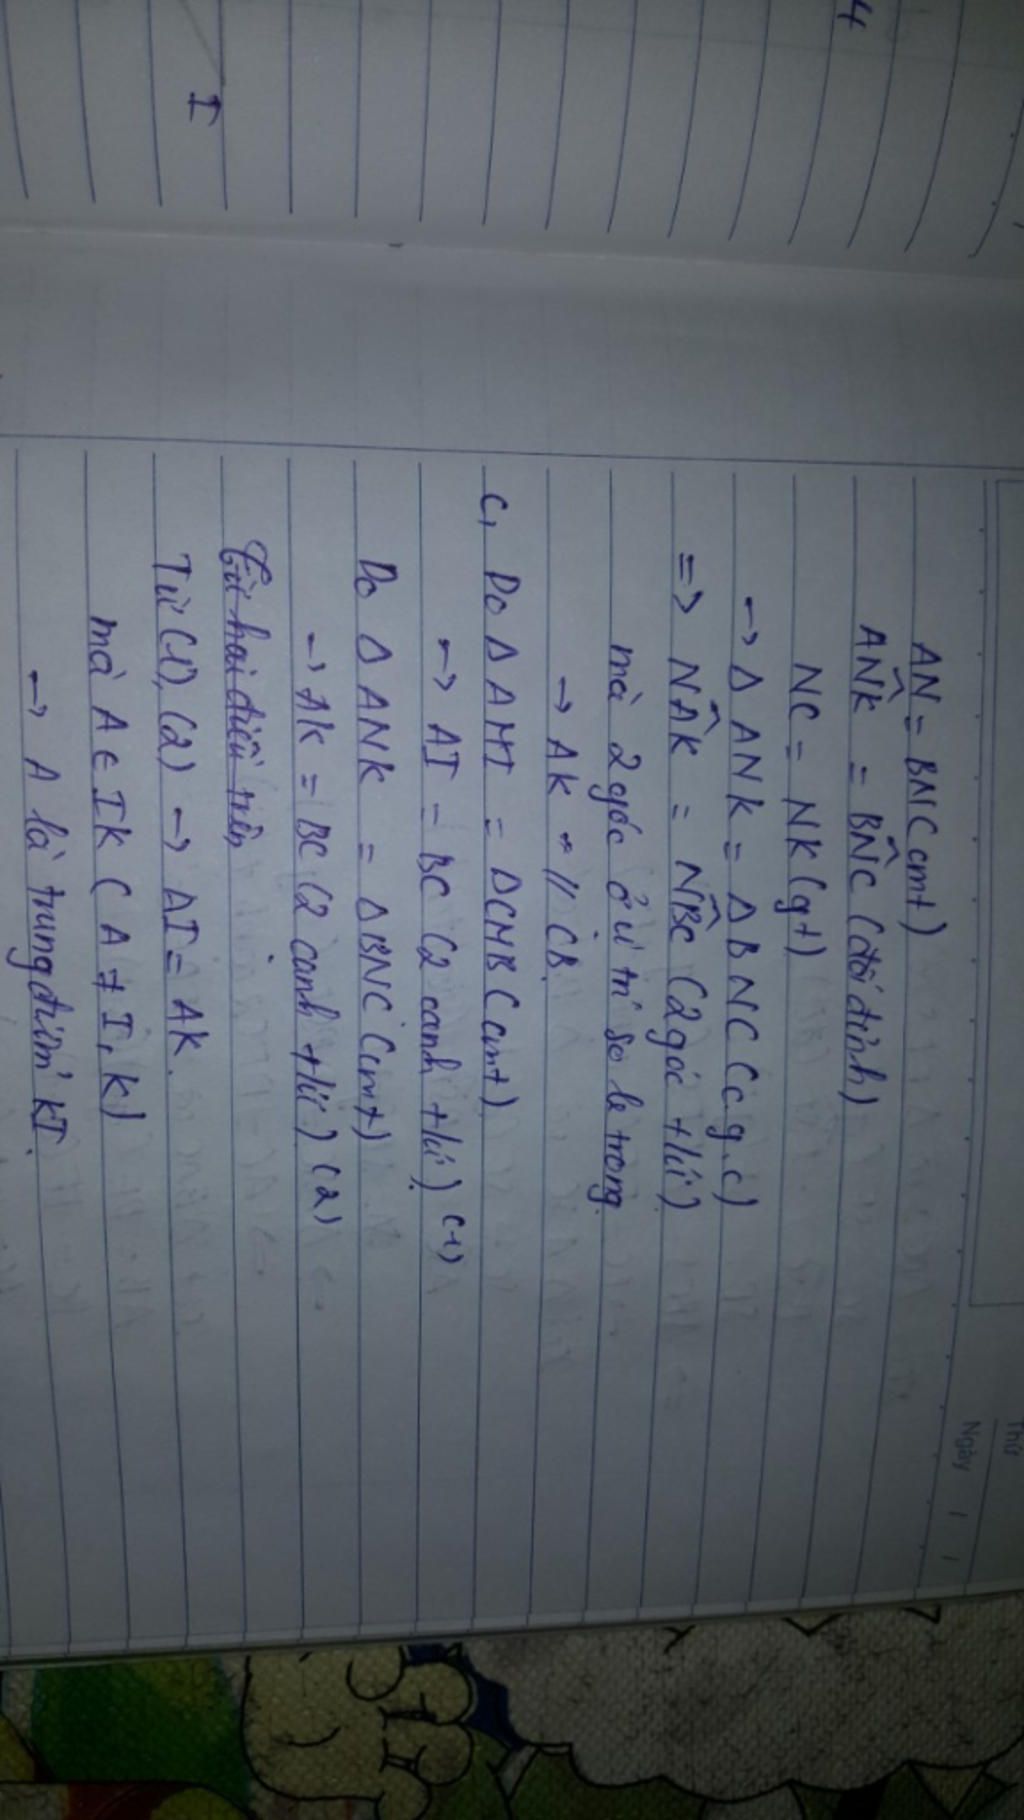 Thứ
Ngày / /
4
I
AN = BN (cmt)
AN̂K = BN̂C (đối đỉnh)
NC = NK (gt)
→ Δ ANK = Δ BNC (c.g.c)
=> NÂK = NB̂C (2 góc t/ứ)
mà 2 góc ở vị trí so le trong
→ AK // CB
C, Do Δ AMI = Δ CMB (cmt)
→ AI = BC (2 cạnh t/ứ) (1)
Do Δ ANK = Δ BNC (cmt)
→ AK = BC (2 cạnh t/ứ) (2)
Từ hai điều trên
Từ (1), (2) → AI = AK.
mà A ∈ IK (A ≠ I, K)
→ A là trung điểm KI.